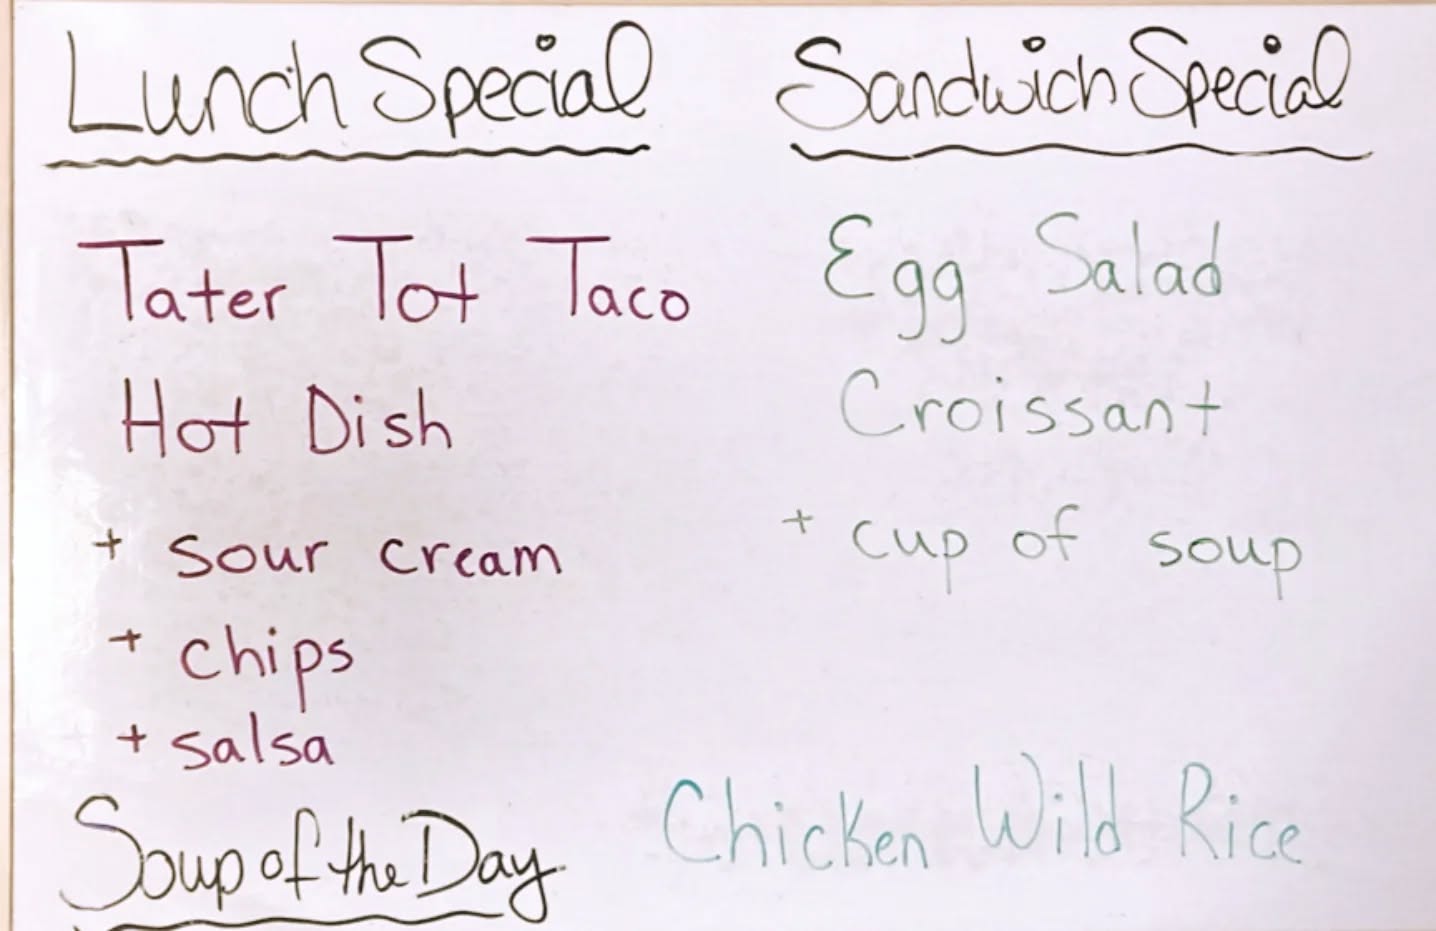 Lunch Special
Tater Tot Taco
Hot Dish
+ sour cream
+ chips
+ salsa
Sandwich Special
Egg Salad
Croissant
+ cup of soup
Soup of the Day
Chicken Wild Rice